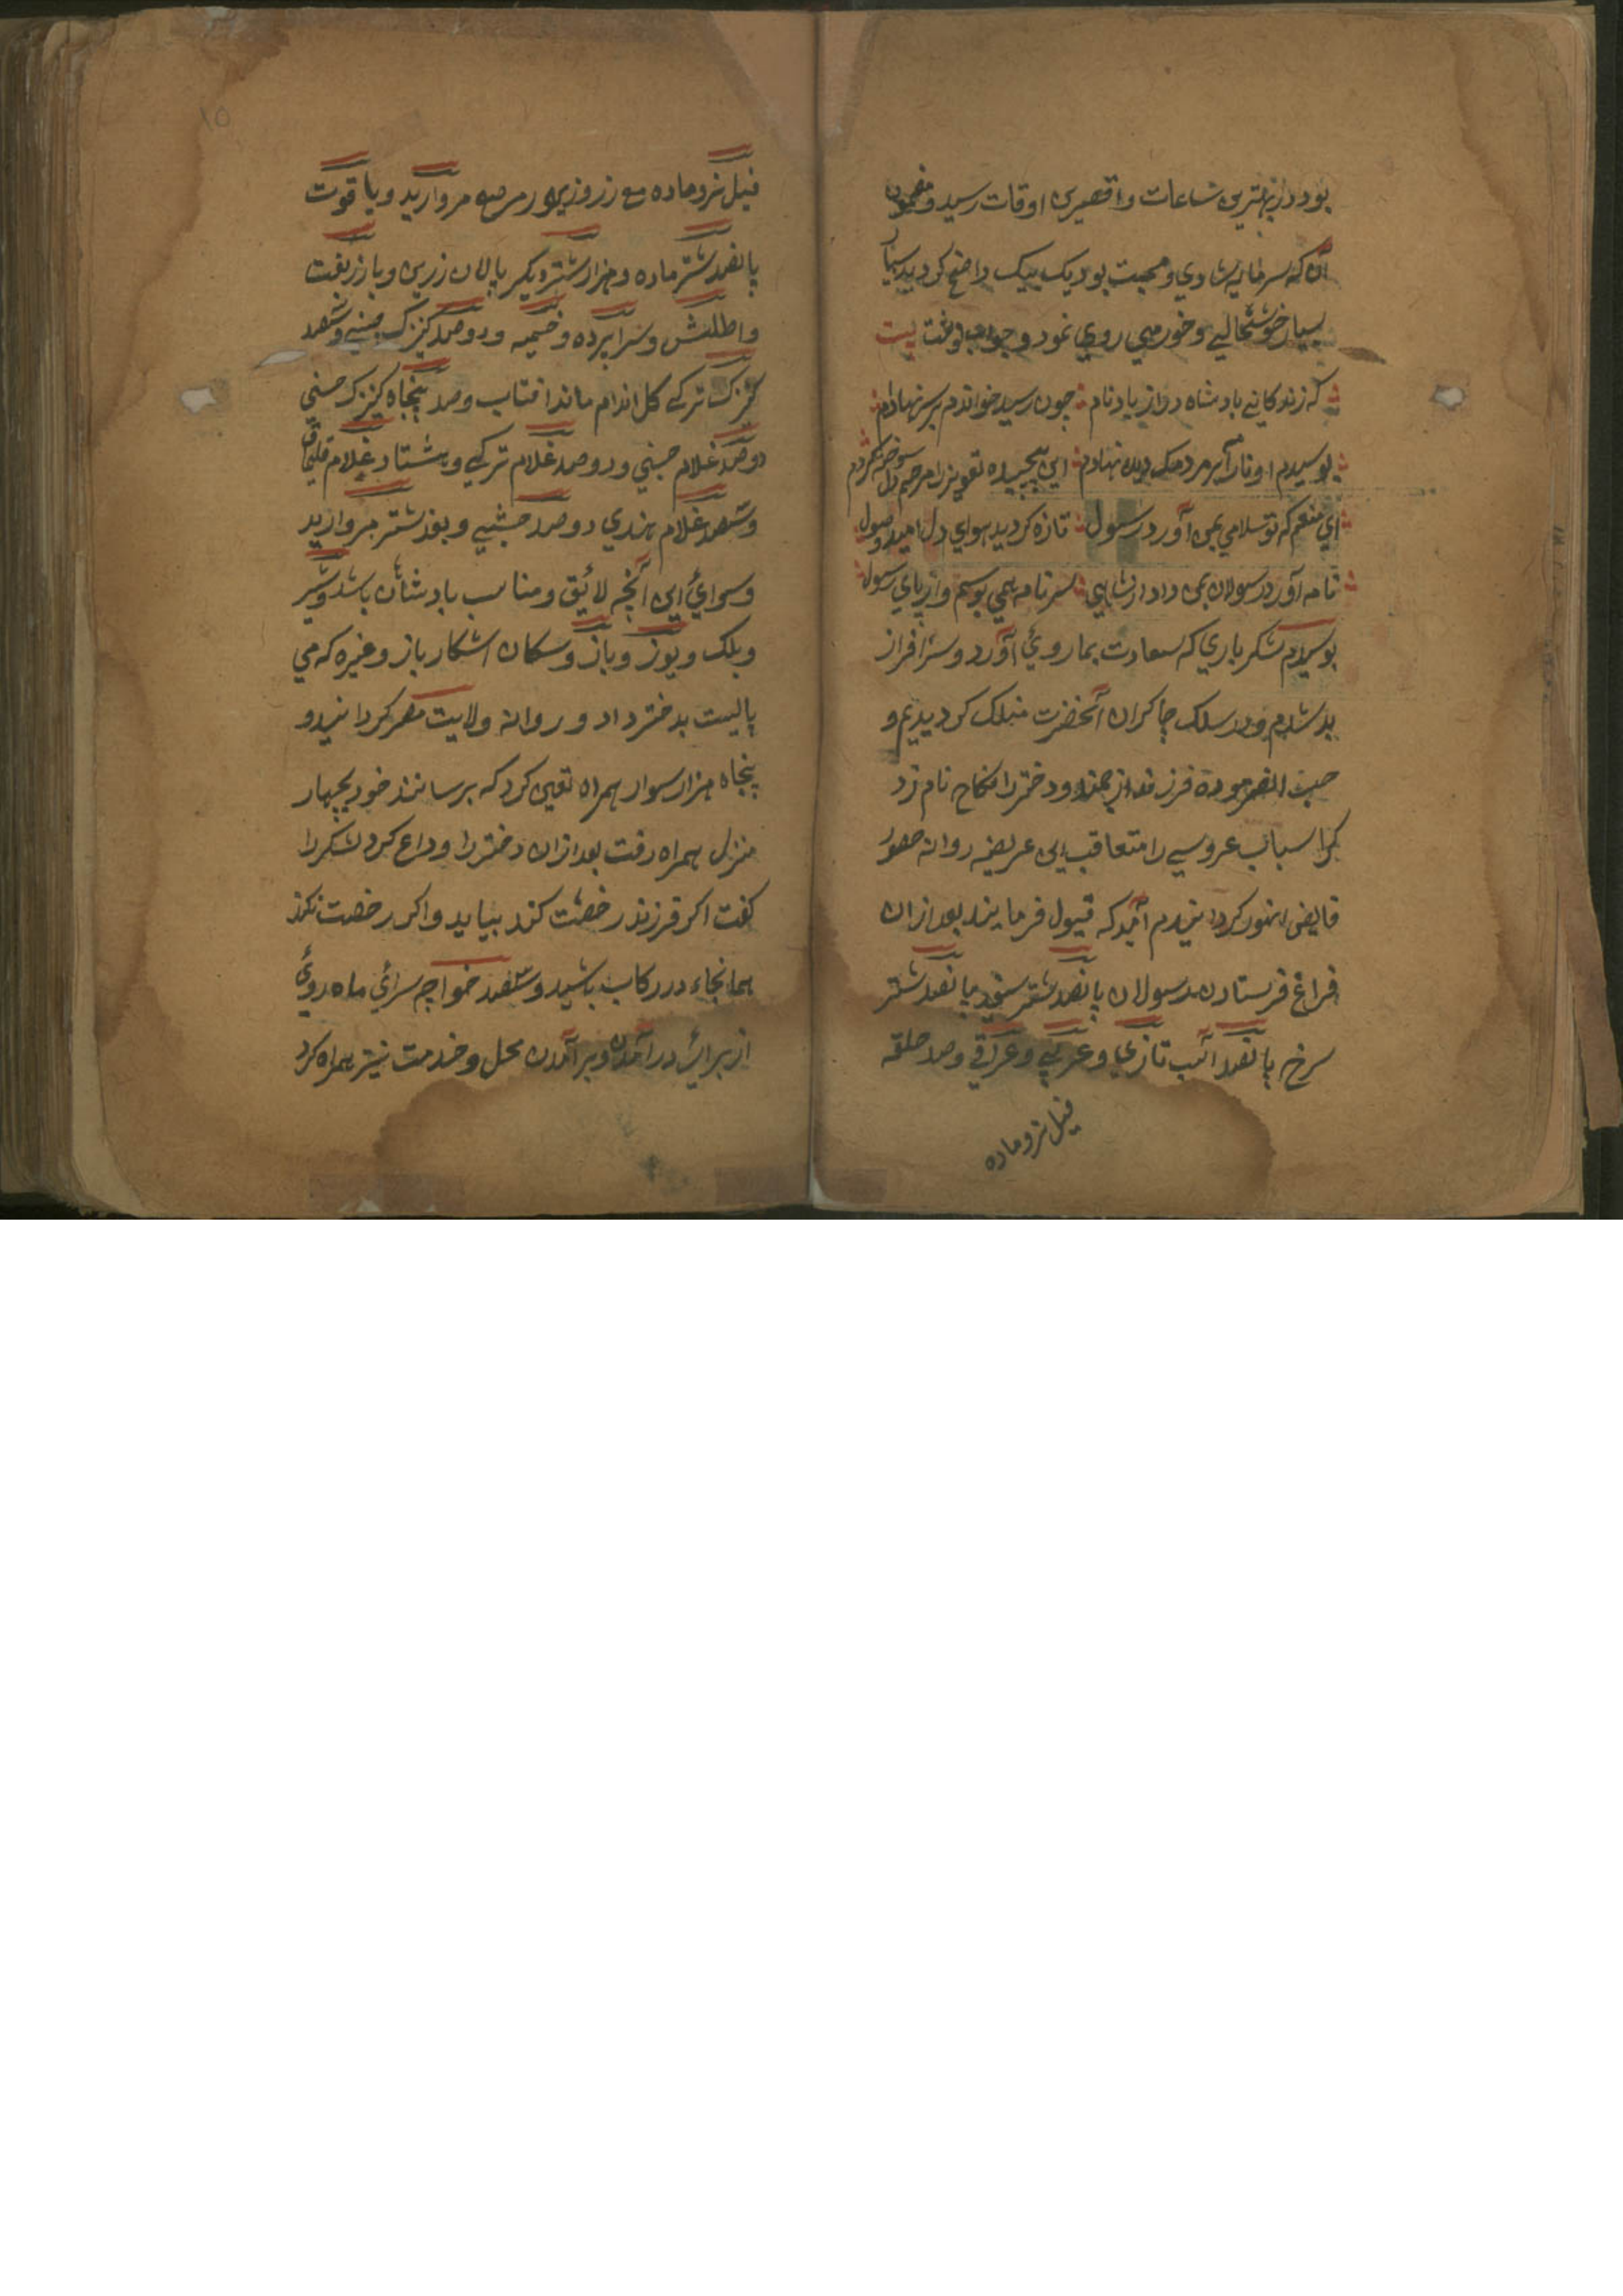 بود در بهترین ساعات و اوقات رسید و مضمون
آن که سرمایه شادی و محبت بود یک بیک واضح کردید
بسیار خوشحالی و خورمی روی نمود و جواب نوشت بیت
که زندکانی بادشاه دراز باد نام چون رسید خواندم بر سر نهادم
بوسیدم او را بر مردمک دیده نهادم این پیچیده تعویذ را مرهم دل سوخته کردم
ای منعم که تو سلامی بمن آورد رسول تازه کردید هوای دل امید وصول
نامه آورد رسولان بمن داد از شاهی سر نامه همی بوسم و از پای رسول
بوسیدم شکر باری که سعادت بما روئ آورد و سرافراز
شدم و در سلک چاکران آنحضرت منسلک کردیدیم و
حسب الفرموده فرزند ارجمند و دختر را نکاح نام زد
کرد اسباب عروسی را متعاقب این عریضه روانه حضور
خواهم کردانیدم آمید که قبول فرمایند بعد ازان
فراغ فرستادن رسولان پانصد شتر سفید پانصد شتر
سرخ پانصد آسب تازی و عربی و عراقی وصد حلقه
فیل نر و ماده
فیل نر و ماده مع زر و زیور مرصع مروارید و یا قوت
پانصد شتر ماده و هزار شتر دیکر پالان زرین و با زربفت
و اطلس و سراپرده و خیمه و دوصد کنزک چینی و شصد
کنزک ترکی کل اندام مانند افتاب وصد پنجاه کنزک حسنی
دوصد غلام حبشی و دوصد غلام ترکی و هشتاد غلام قلماق
و شصد غلام هندی دوصد حبشی و بوذ شتر مروارید
و سوائ این آنچه لائق و مناسب بادشاهان باشد و شیر
و پلنک و یوز و باز و سکان اشکار باز و غیره که می
بایست بدختر داد و روانه ولایت مصر کردانید و
پنجاه هزار سوار همراه تعین کرد که برسانند خود بچهار
منزل همراه رفت بعد ازان دختر را وداع کرد لشکر را
کفت اکر فرزند رخصت کند بیاید و اکر رخصت نکند
همانجا در رکاب باشید و سصد خواجه سرائ ماه روئ
از برائ درآمدن و برآمدن محل و خدمت نیز همراه کرد